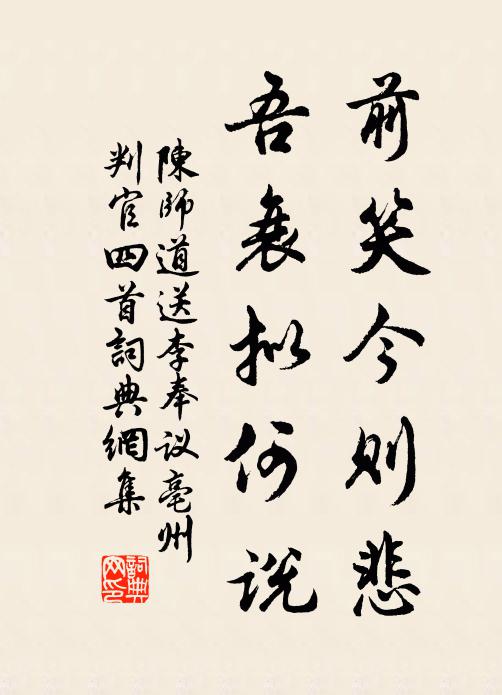 前笑今则悲
吾衰拟何说
陳師道送李奉议亳州
判官四首詞典網集
詞典
网印